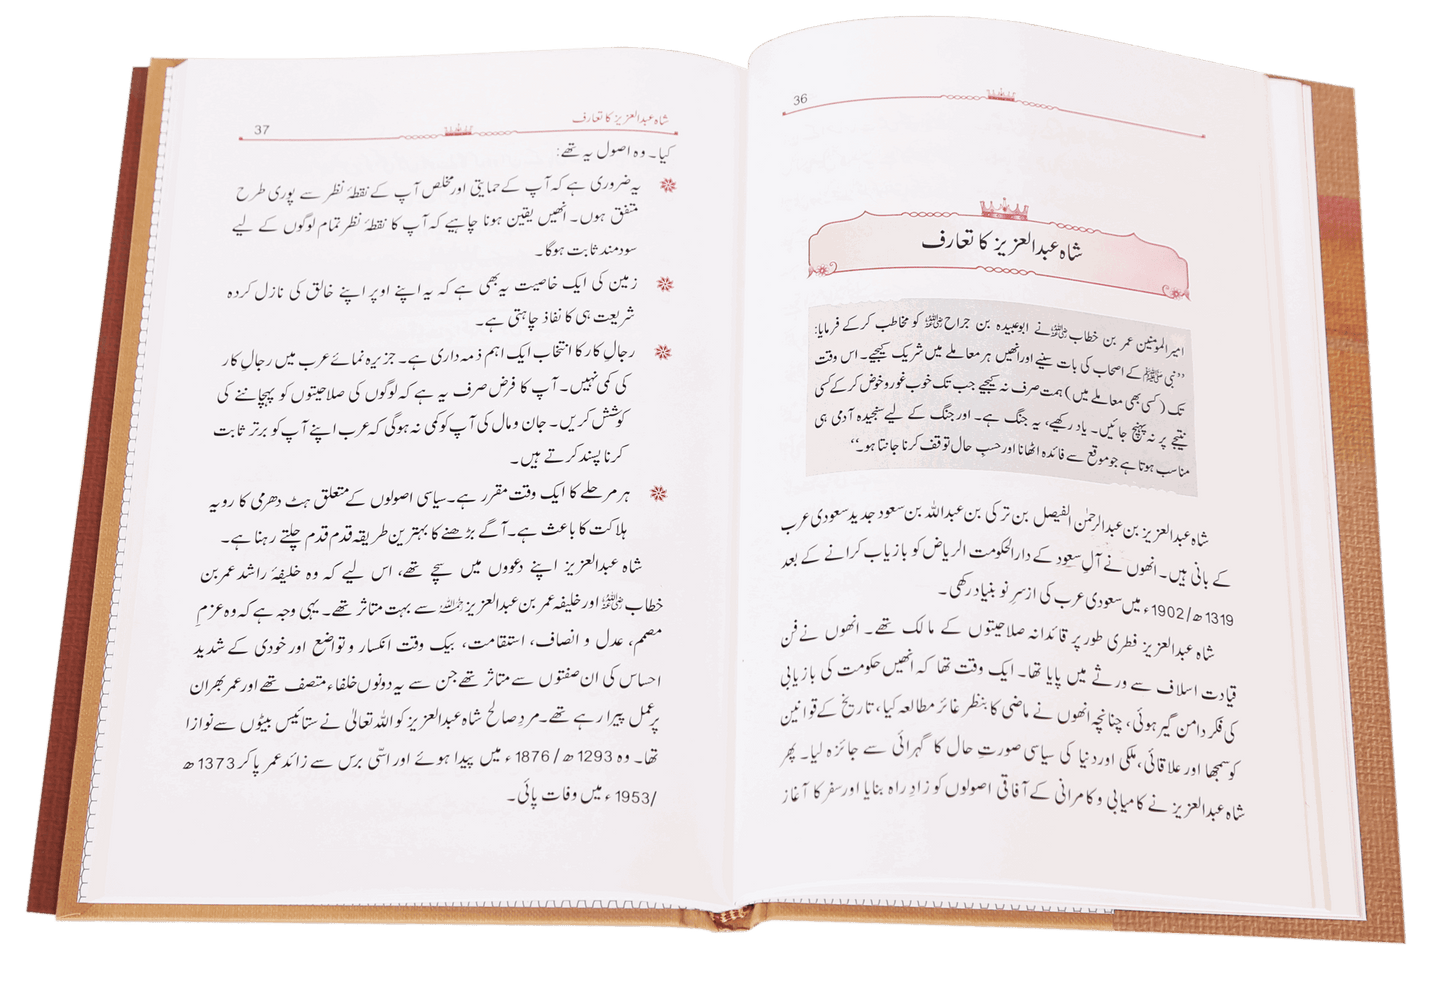 36
شاہ عبدالعزیز کا تعارف
امیر المومنین عمر بن خطاب رضی اللہ عنہ نے ابوعبیدہ بن جراح رضی اللہ عنہ کو مخاطب کرکے فرمایا:
”نبی ﷺ کے اصحاب کی بات سنیے اور انھیں ہر معاملے میں شریک کیجیے۔ اس وقت
تک (کسی بھی معاملے میں) ہمت صرف نہ کیجیے جب تک خوب غور و خوض کرکے کسی
نتیجے پر نہ پہنچ جائیں۔ یاد رکھیے، یہ جنگ ہے۔ اور جنگ کے لیے سنجیدہ آدمی ہی
مناسب ہوتا ہے جو موقع سے فائدہ اٹھانا اور حسب حال توقف کرنا جانتا ہو۔“
شاہ عبدالعزیز بن عبدالرحمٰن الفیصل بن ترکی بن عبداللہ بن سعود جدید سعودی عرب
کے بانی ہیں۔ انھوں نے آلِ سعود کے دارالحکومت الریاض کو بازیاب کرانے کے بعد
1319ھ/1902ء میں سعودی عرب کی از سرِ نو بنیاد رکھی۔
شاہ عبدالعزیز فطری طور پر قائدانہ صلاحیتوں کے مالک تھے۔ انھوں نے فن
قیادت اسلاف سے ورثے میں پایا تھا۔ ایک وقت تھا کہ انھیں حکومت کی بازیابی
کی فکر دامن گیر ہوئی، چنانچہ انھوں نے ماضی کا بنظر غائر مطالعہ کیا، تاریخ کے قوانین
کو سمجھا اور علاقائی، ملکی اور دنیا کی سیاسی صورتِ حال کا گہرائی سے جائزہ لیا۔ پھر
شاہ عبدالعزیز نے کامیابی و کامرانی کے آفاقی اصولوں کو زادِ راہ بنایا اور سفر کا آغاز
شاہ عبدالعزیز کا تعارف 37
کیا۔ وہ اصول یہ تھے:
یہ ضروری ہے کہ آپ کے حمایتی اور مخلص آپ کے نقطۂ نظر سے پوری طرح
متفق ہوں۔ انھیں یقین ہونا چاہیے کہ آپ کا نقطۂ نظر تمام لوگوں کے لیے
سودمند ثابت ہوگا۔
زمین کی ایک خاصیت یہ بھی ہے کہ یہ اپنے اوپر اپنے خالق کی نازل کردہ
شریعت ہی کا نفاذ چاہتی ہے۔
رجالِ کار کا انتخاب ایک اہم ذمہ داری ہے۔ جزیرہ نمائے عرب میں رجالِ کار
کی کمی نہیں۔ آپ کا فرض صرف یہ ہے کہ لوگوں کی صلاحیتوں کو پہچاننے کی
کوشش کریں۔ جان و مال کی آپ کو کمی نہ ہوگی کہ عرب اپنے آپ کو برتر ثابت
کرنا پسند کرتے ہیں۔
ہر مرحلے کا ایک وقت مقرر ہے۔ سیاسی اصولوں کے متعلق ہٹ دھرمی کا رویہ
ہلاکت کا باعث ہے۔ آگے بڑھنے کا بہترین طریقہ قدم قدم چلتے رہنا ہے۔
شاہ عبدالعزیز اپنے دعووں میں سچے تھے، اس لیے کہ وہ خلیفۂ راشد عمر بن
خطاب رضی اللہ عنہ اور خلیفہ عمر بن عبدالعزیز رحمہ اللہ سے بہت متاثر تھے۔ یہی وجہ ہے کہ وہ عزمِ
مصمم، عدل و انصاف، استقامت، بیک وقت انکسار و تواضع اور خودی کے شدید
احساس کی ان صفتوں سے متاثر تھے جن سے یہ دونوں خلفاء متصف تھے اور عمر بھر ان
پر عمل پیرا رہے تھے۔ مردِ صالح شاہ عبدالعزیز کو اللہ تعالیٰ نے ستائیس بیٹوں سے نوازا
تھا۔ وہ 1293ھ/1876ء میں پیدا ہوئے اور اسّی برس سے زائد عمر پاکر 1373ھ
/1953ء میں وفات پائی۔